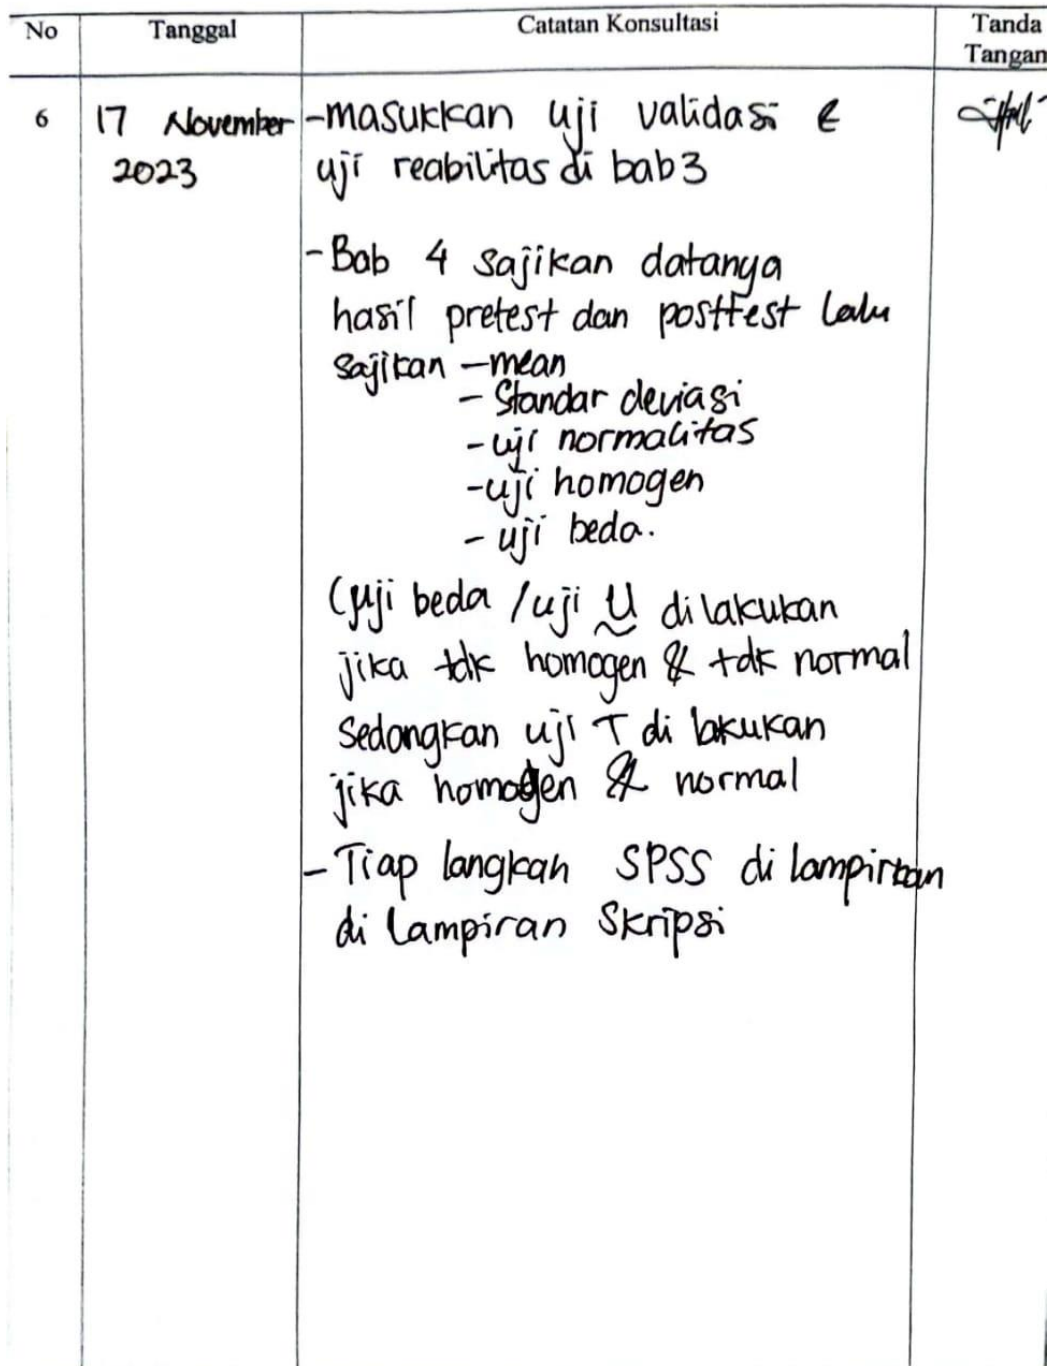 No Tanggal Catatan Konsultasi Tanda
Tangan
6 17 November -masukkan uji validasi &
2023 uji reabilitas di bab 3
-Bab 4 sajikan datanya
hasil pretest dan posttest lalu
sajikan -mean
- Standar deviasi
-uji normalitas
-uji homogen
- uji beda.
(uji beda / uji U di lakukan
jika tdk homogen & tdk normal
sedangkan uji T di lakukan
jika homogen & normal
- Tiap langkah SPSS di lampirkan
di lampiran Skripsi